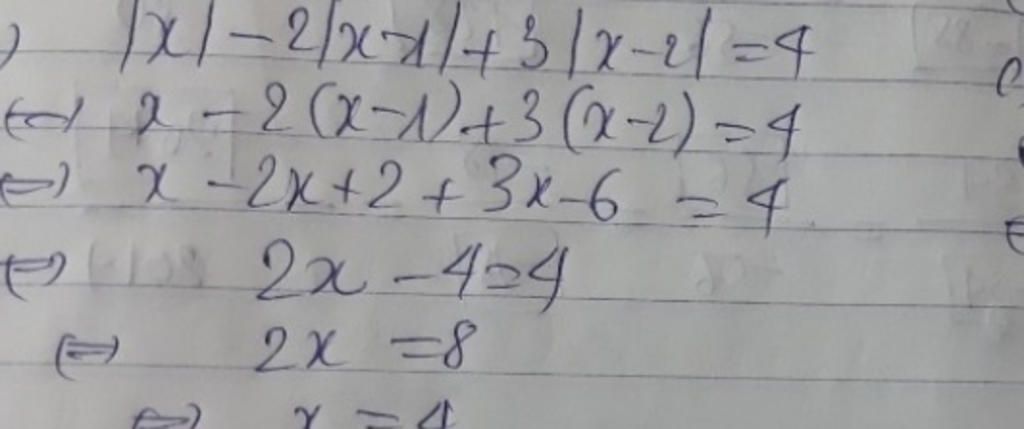 ) |x| - 2|x-1| + 3|x-2| = 4
⇔ x - 2(x-1) + 3(x-2) = 4
⇔ x - 2x + 2 + 3x - 6 = 4
⇔ 2x - 4 = 4
⇔ 2x = 8
⇔ x = 4